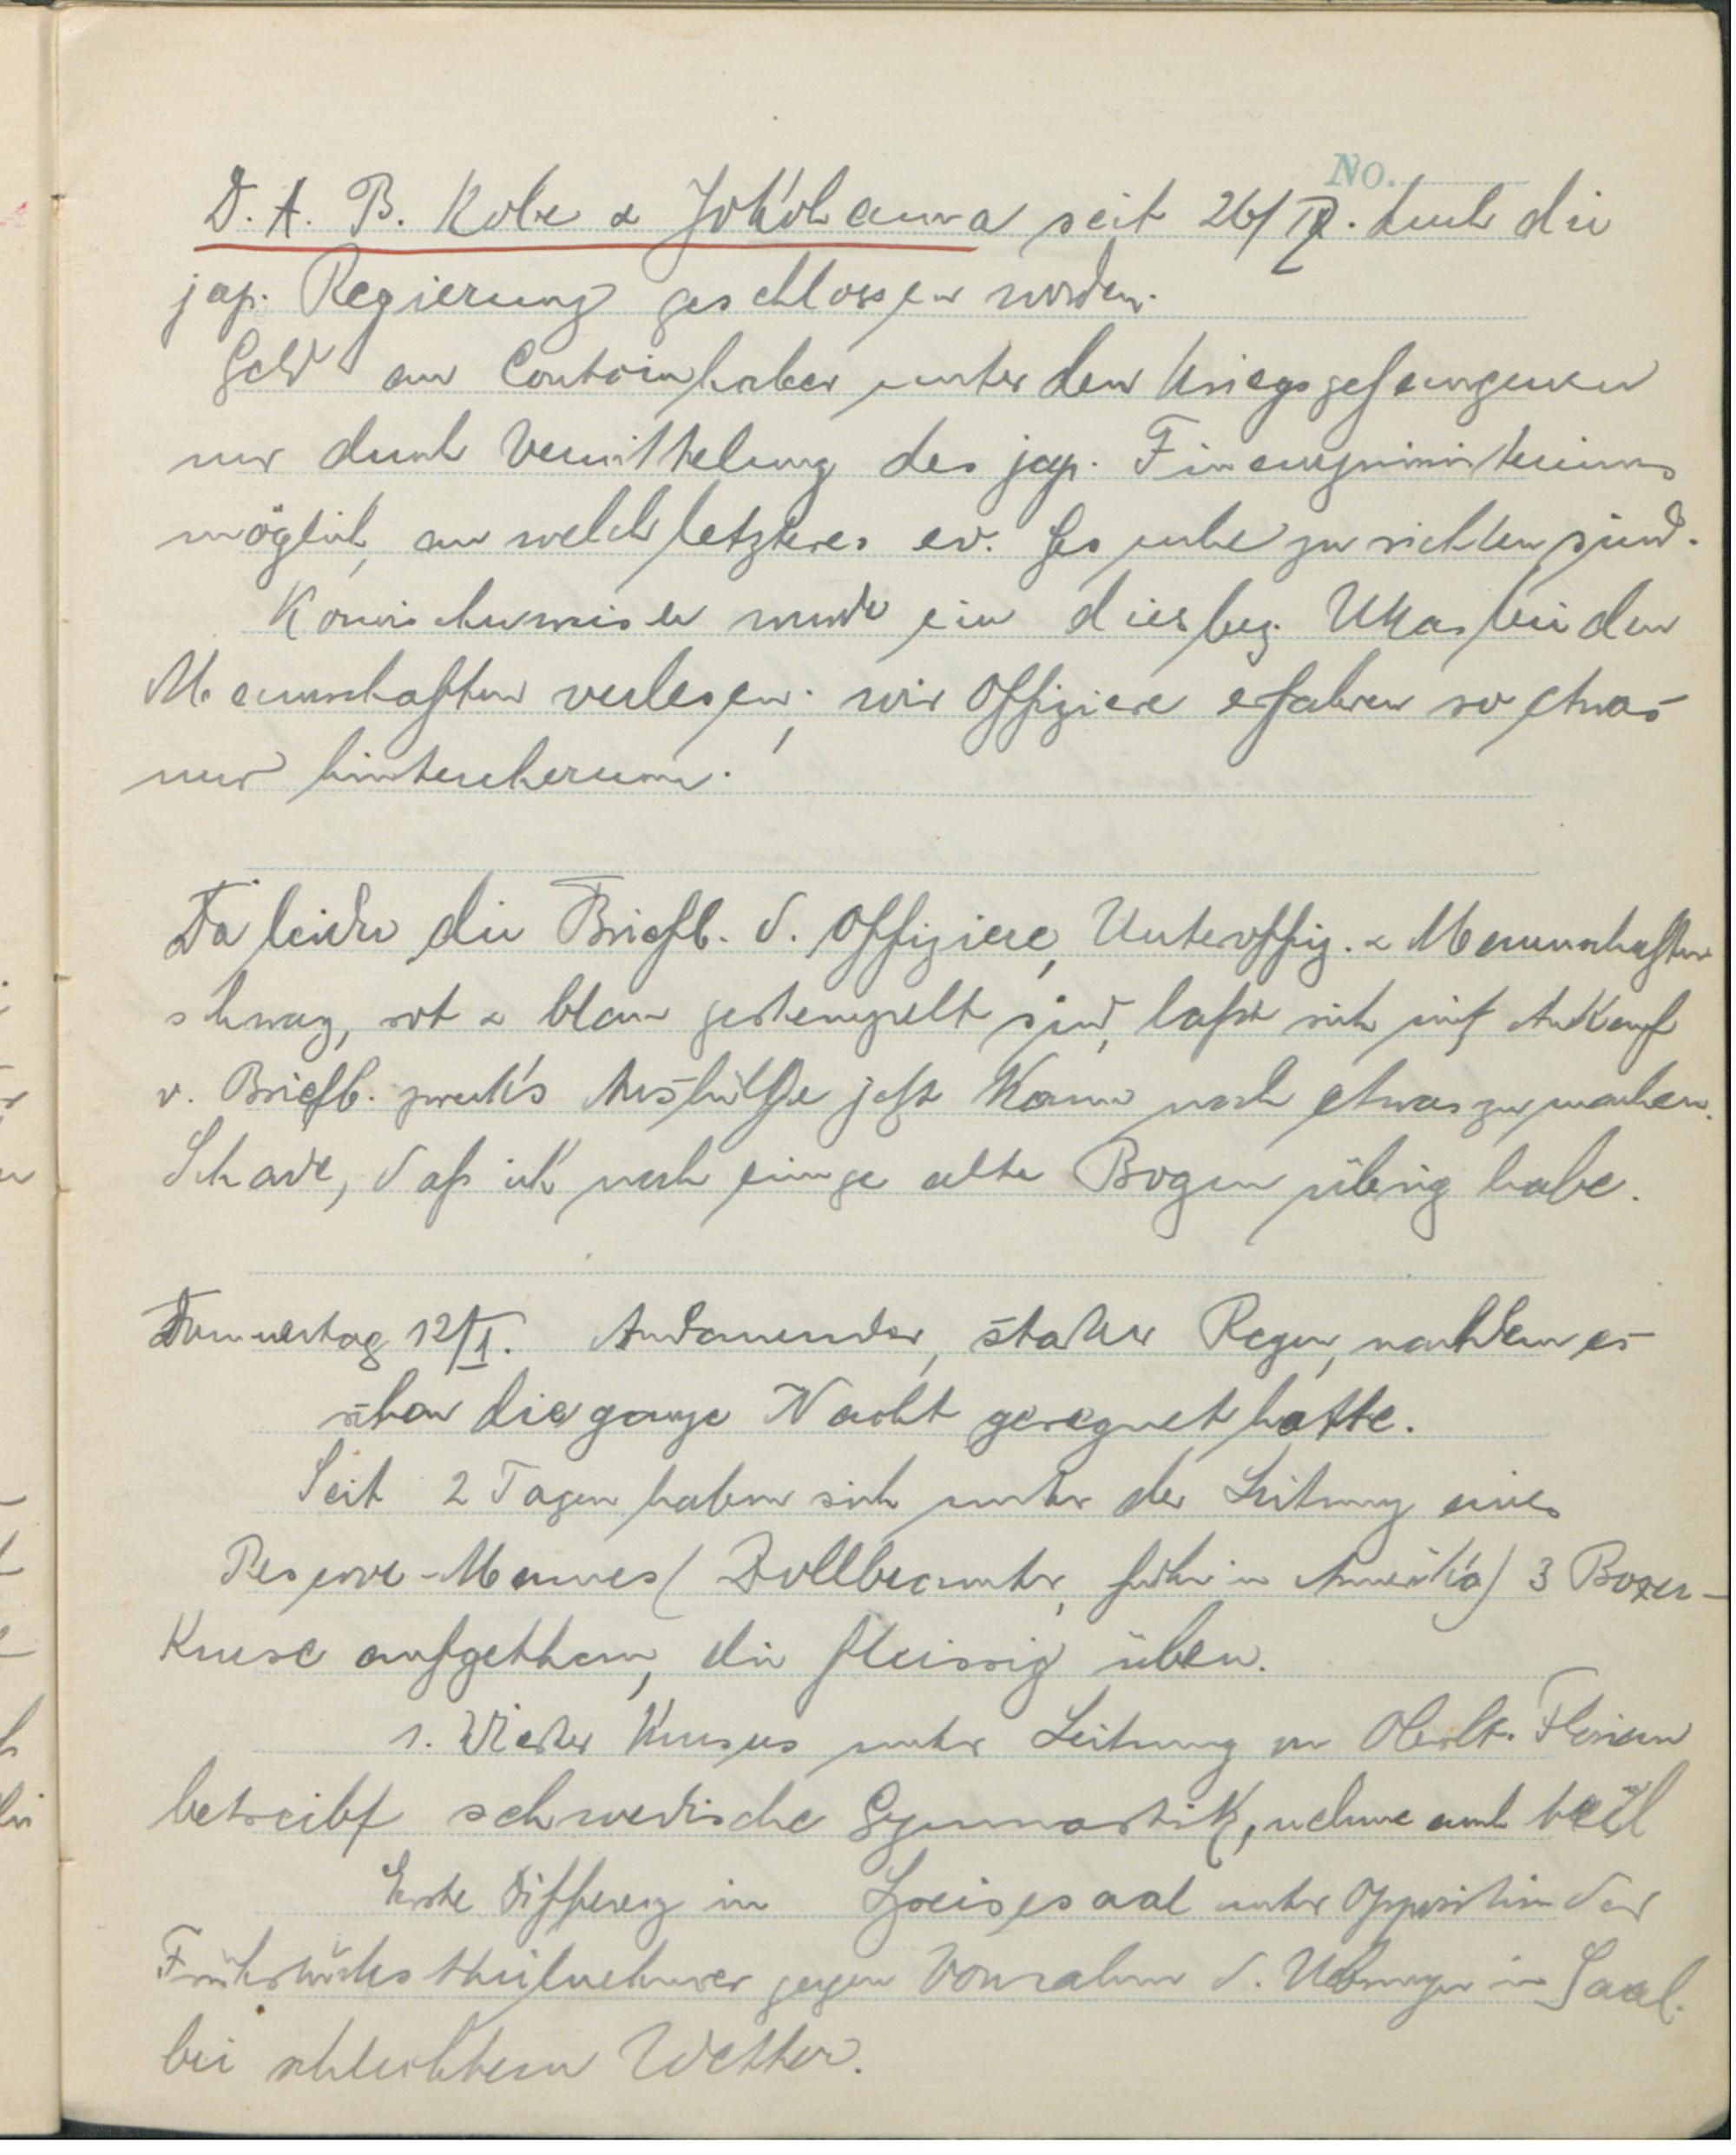 No.
D. A. B. Kobe & Jokohama seit 26/IX. durch die
jap. Regierung geschlossen worden.
Geld an Contoinhaber unter den Kriegsgefangenen
nur durch Vermittelung des jap. Finanzministeriums
möglich, an welch letzteres ev. Gesuche zu richten sind.
Komischerweise wurde ein diesbez. Ukas bei den
Mannschaften verlesen; wir Offiziere erfahren so etwas
nur hintenherum.
Da leider die Briefb. d. Offiziere, Unteroffiz. & Mannschaften
schwarz, rot & blau gestempelt sind, lässt sich mit Ankauf
v. Briefb. zwecks Aushülfe jetzt kaum noch etwas zu machen.
Schade, daß ich noch einige alte Bogen übrig habe.
Donnerstag 12/X. Andauernder, starker Regen, nachdem es
schon die ganze Nacht geregnet hatte.
Seit 2 Tagen haben sich unter der Leitung eines
Reserve-Mannes (Zollbeamter, früher in Amerika) 3 Boxer-
Kurse aufgethan, die fleissig üben.
1. Kursus unter Leitung von Oberlt. Florian
betreibt schwedische Gymnastik, nehme auch teil
Erste Differenz im Speisesaal unter Opposition der
Frühstückstheilnehmer gegen Vornahme d. Uebungen im Saal.
bei schlechtem Wetter.